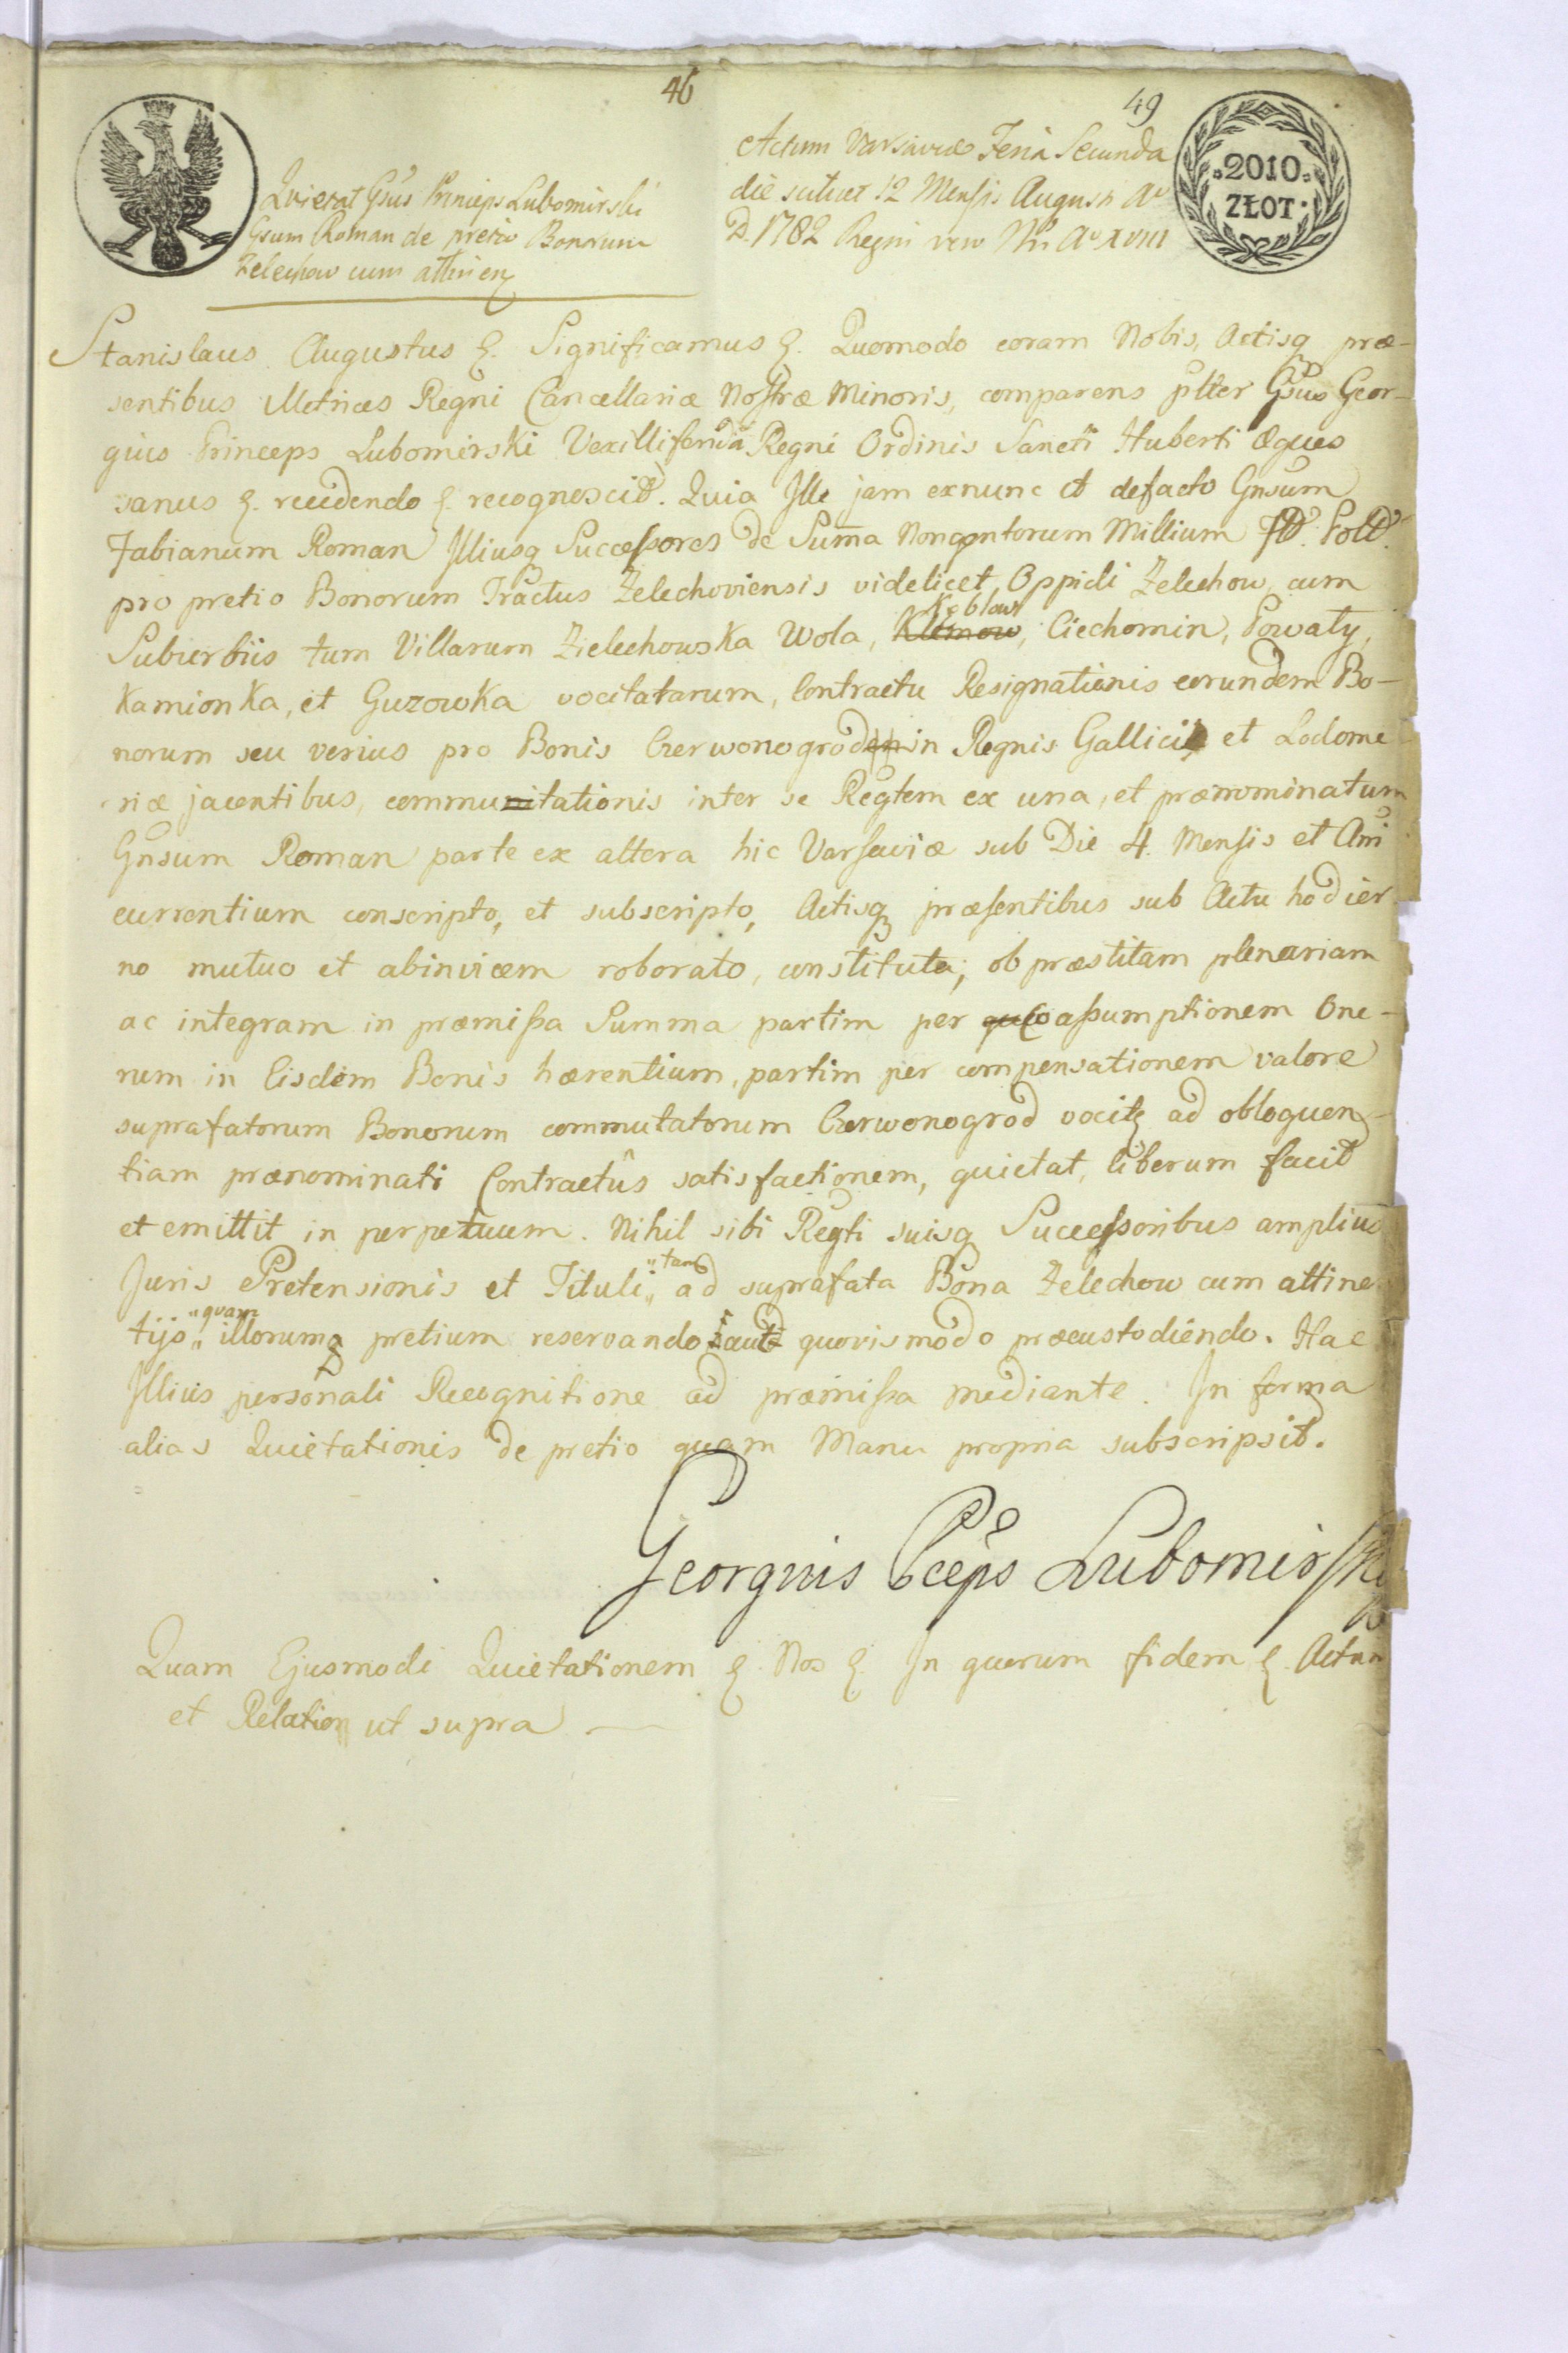 46
49
Quietat Gsus Princeps Lubomirski
Gsum Roman de pretio Bonorum
Zelechow cum attinen
Actum Varsaviæ Feria Secunda
die scilicet 12 Mensis Augusti Ao
D. 1782 Regni vero Nri Ao XVIII
2010
ZŁOT
Stanislaus Augustus &. Significamus &. Quomodo coram Nobis, Actisq præ-
sentibus Metrices Regni Cancellariæ Nostræ Minoris, comparens pltter Gsus Geor-
gius Princeps Lubomirski Vexilliferida Regni Ordinis Sancti Huberti Eques
sanus &. recedendo &. recognoscit. Quia Ille jam exnunc et defacto Gnsum
Fabianum Roman Illiusq Successores de Suma Nongentorum Millium Flo. Pold.
pro pretio Bonorum Tractus Zelechoviensis videlicet, Oppidi Zelechow, cum
Suburbiis tum Villarum Zielechowska Wola, Klemow, Kębłow Ciechomin, Powaty,
Kamionka, et Guzowka vocitatarum, Contractu Resignationis eorundem Bo-
norum seu verius pro Bonis Czerwonogroden in Regnis Gallicia et Lodome
riæ jacentibus, communitationis inter se Regtem ex una, et prænominatum
Gnsum Roman parte ex altera hic Varsaviæ sub Die 4. Mensis et Ani
currentium conscripto, et subscripto, Actisq præsentibus sub Actu hodier
no mutuo et abinvicem roborato, constituta; ob præstitam plenariam
ac integram in præmissa Summa partim per assumptionem One-
rum in Eisdem Bonis hærentium, partim per compensationem valore
suprafatorum Bonorum commutatorum Czerwonogrod vocit ad obloquen-
tiam prænominati Contractûs satisfactionem, quietat, liberum facit
et emittit in perpetuum. Nihil sibi Regti suisq Successoribus amplius
Juris Pretensionis et Tituli „tam„ ad suprafata Bona Zelechow cum attine
tijs „quam„ illorumq pretium reservando aut quovismodo præcustodiendo. Hac
Illius personali Recognitione ad præmissa mediante. In forma
alias Quietationis de pretio quam Manu propria subscripsit.
Georgius Pceps Lubomirski
Quam Ejusmodi Quietationem &. Nos &. In quorum fidem &. Actum
et Relation ut supra